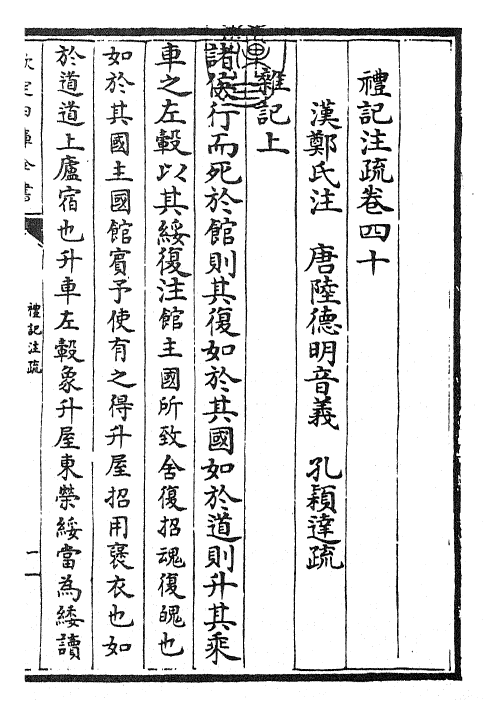 禮記注疏卷四十
漢鄭氏注　唐陸德明音義　孔穎達疏
雜記上
諸侯行而死於館則其復如於其國如於道則升其乘
車之左轂以其綏復注館主國所致舍復招魂復魄也
如於其國主國館賓予使有之得升屋招用褒衣也如
於道道上廬宿也升車左轂象升屋東榮綏當為緌讀
欽定四庫全書
禮記注疏
一